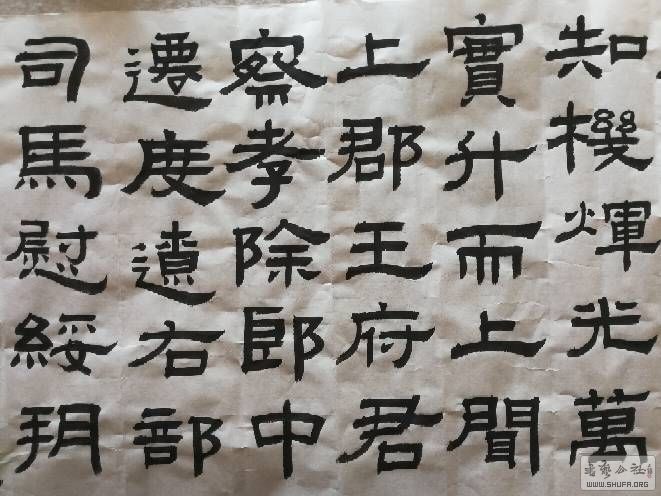 知機煇光萬
實升而上聞
上郡王府君
察孝除郎中
遷度遼右部
司馬慰綏朔
書藝公社
WWW.SHUFA.ORG